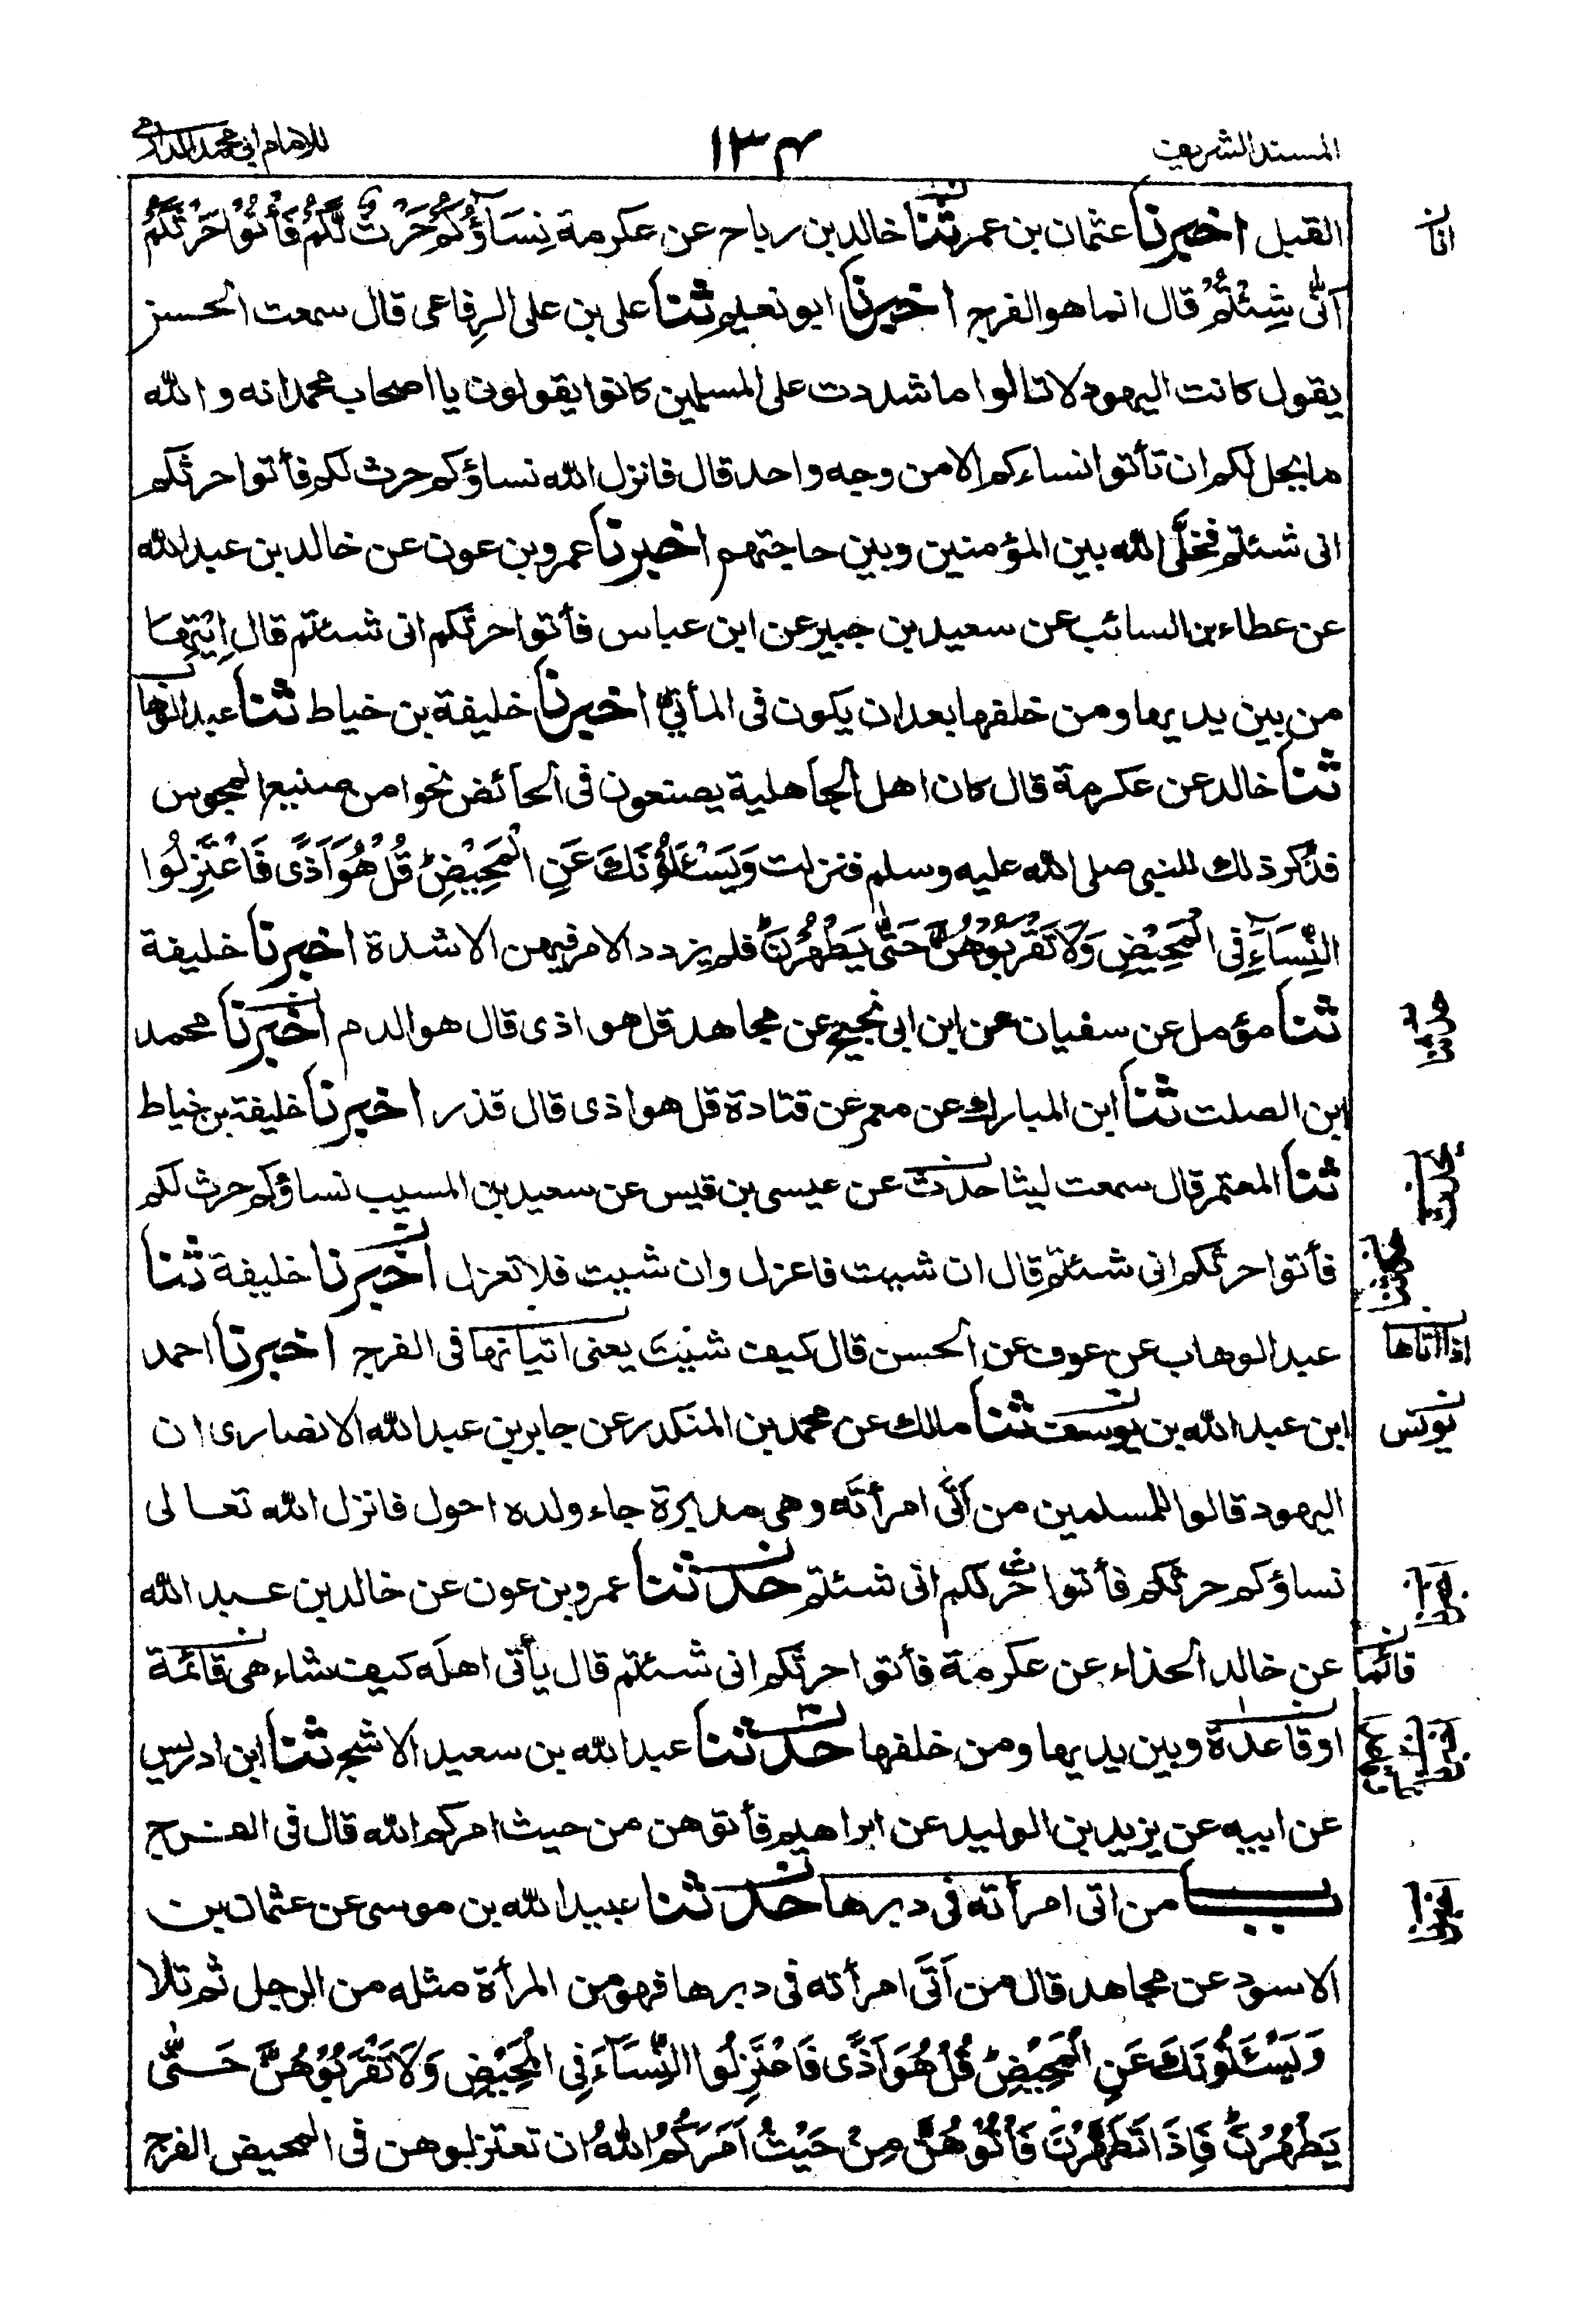 المسند الشريف ١٣٤ للامام ابي محمد الدارمي
القبل اخبرنا عثمان بن عمر ثنا خالد بن رباح عن عكرمة نِسَآؤُكُمْ حَرْثٌ لَّكُمْ فَأْتُوْا حَرْثَكُمْ
اَنّٰى شِئْتُمْ قال انما هو الفرج اخبرنا ابو نعيم ثنا على بن على الرفاعى قال سمعت الحسن
يقول كانت اليهود لا تالوا ما شددت على المسلمين كانوا يقولون يا اصحاب محمد انه والله
ما يحل لكم ان تأتوا نساءكم الا من وجه واحد قال فانزل الله نساؤكم حرث لكم فأتوا حرثكم
انى شئتم فخلَّى الله بين المؤمنين وبين حاجتهم اخبرنا عمرو بن عون عن خالد بن عبد الله
عن عطاء بن السائب عن سعيد بن جبير عن ابن عباس فأتوا حرثكم انى شئتم قال اِيْتِها
من بين يديها ومن خلفها بعد ان يكون فى المأتى اخبرنا خليفة بن خياط ثنا عبد الوهاب
ثنا خالد عن عكرمة قال كان اهل الجاهلية يصنعون فى الحائض نحوا من صنيع المجوس
فذكر ذلك للنبى صلى الله عليه وسلم فنزلت وَيَسْئَلُوْنَكَ عَنِ الْمَحِيْضِ قُلْ هُوَ اَذًى فَاعْتَزِلُوا
النِّسَآءَ فِى الْمَحِيْضِ وَلَا تَقْرَبُوْهُنَّ حَتّٰى يَطْهُرْنَ فلم يزدد الامر فيهن الا شدة اخبرنا خليفة
ثنا مؤمل عن سفيان عن ابن ابى نجيح عن مجاهد قل هو اذى قال هو الدم اخبرنا محمد
ابن الصلت ثنا ابن المبارك عن معمر عن قتادة قل هو اذى قال قذر اخبرنا خليفة بن خياط
ثنا المعتمر قال سمعت ليثا حدث عن عيسى بن قيس عن سعيد بن المسيب نساؤكم حرث لكم
فأتوا حرثكم انى شئتم قال ان شيت فاعزل وان شيت فلا تعزل اخبرنا خليفة ثنا
عبد الوهاب عن عوف عن الحسن قال كيف شئت يعنى اتيانها فى الفرج اخبرنا احمد
ابن عبد الله بن يوسف ثنا مالك عن محمد بن المنكدر عن جابر بن عبد الله الانصارى ان
اليهود قالوا للمسلمين من اَتَى امرأته وهى مدبرة جاء ولده احول فانزل الله تعالى
نساؤكم حرثكم فأتوا حرثكم انى شئتم حدثنا عمرو بن عون عن خالد بن عبد الله
عن خالد الحذاء عن عكرمة فأتوا حرثكم انى شئتم قال يأتى اهلَه كيف شاء هى قائمة
او قاعدة وبين يديها ومن خلفها حدثنا عبد الله بن سعيد الاشج ثنا ابن ادريس
عن ابيه عن يزيد بن الوليد عن ابراهيم فأتوهن من حيث امركم الله قال فى الفرج
باب من اتى امرأته فى دبرها حدثنا عبيد الله بن موسى عن عثمان بن
الاسود عن مجاهد قال من اَتَى امرأته فى دبرها فهو من المرأة مثله من الرجل ثم تلا
وَيَسْئَلُوْنَكَ عَنِ الْمَحِيْضِ قُلْ هُوَ اَذًى فَاعْتَزِلُوا النِّسَآءَ فِى الْمَحِيْضِ وَلَا تَقْرَبُوْهُنَّ حَتّٰى
يَطْهُرْنَ فَاِذَا تَطَهَّرْنَ فَأْتُوْهُنَّ مِنْ حَيْثُ اَمَرَكُمُ اللّٰهُ ان تعتزلوهن فى المحيض الفرج
حدثنا
اذا اتاها
يونس
قائما